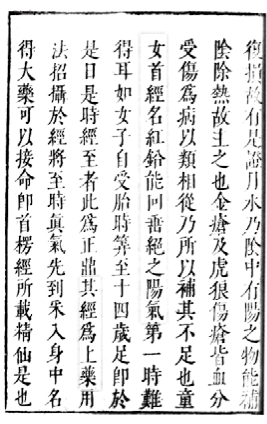 復損故有是證月水乃陰中有陽之物能補
陰除熱故主之也金瘡及虎狠傷瘡皆血分
受傷爲病以類相從乃所以補其不足也童
女首經名紅鉛能回垂絕之陽氣第一時難
得耳如女子自受胎時筭至十四歲足卽於
是日是時經至者此爲正鼎其經爲上藥用
法招攝於經將至時眞氣先到采入身中名
得大藥可以接命卽首楞經所載精仙是也